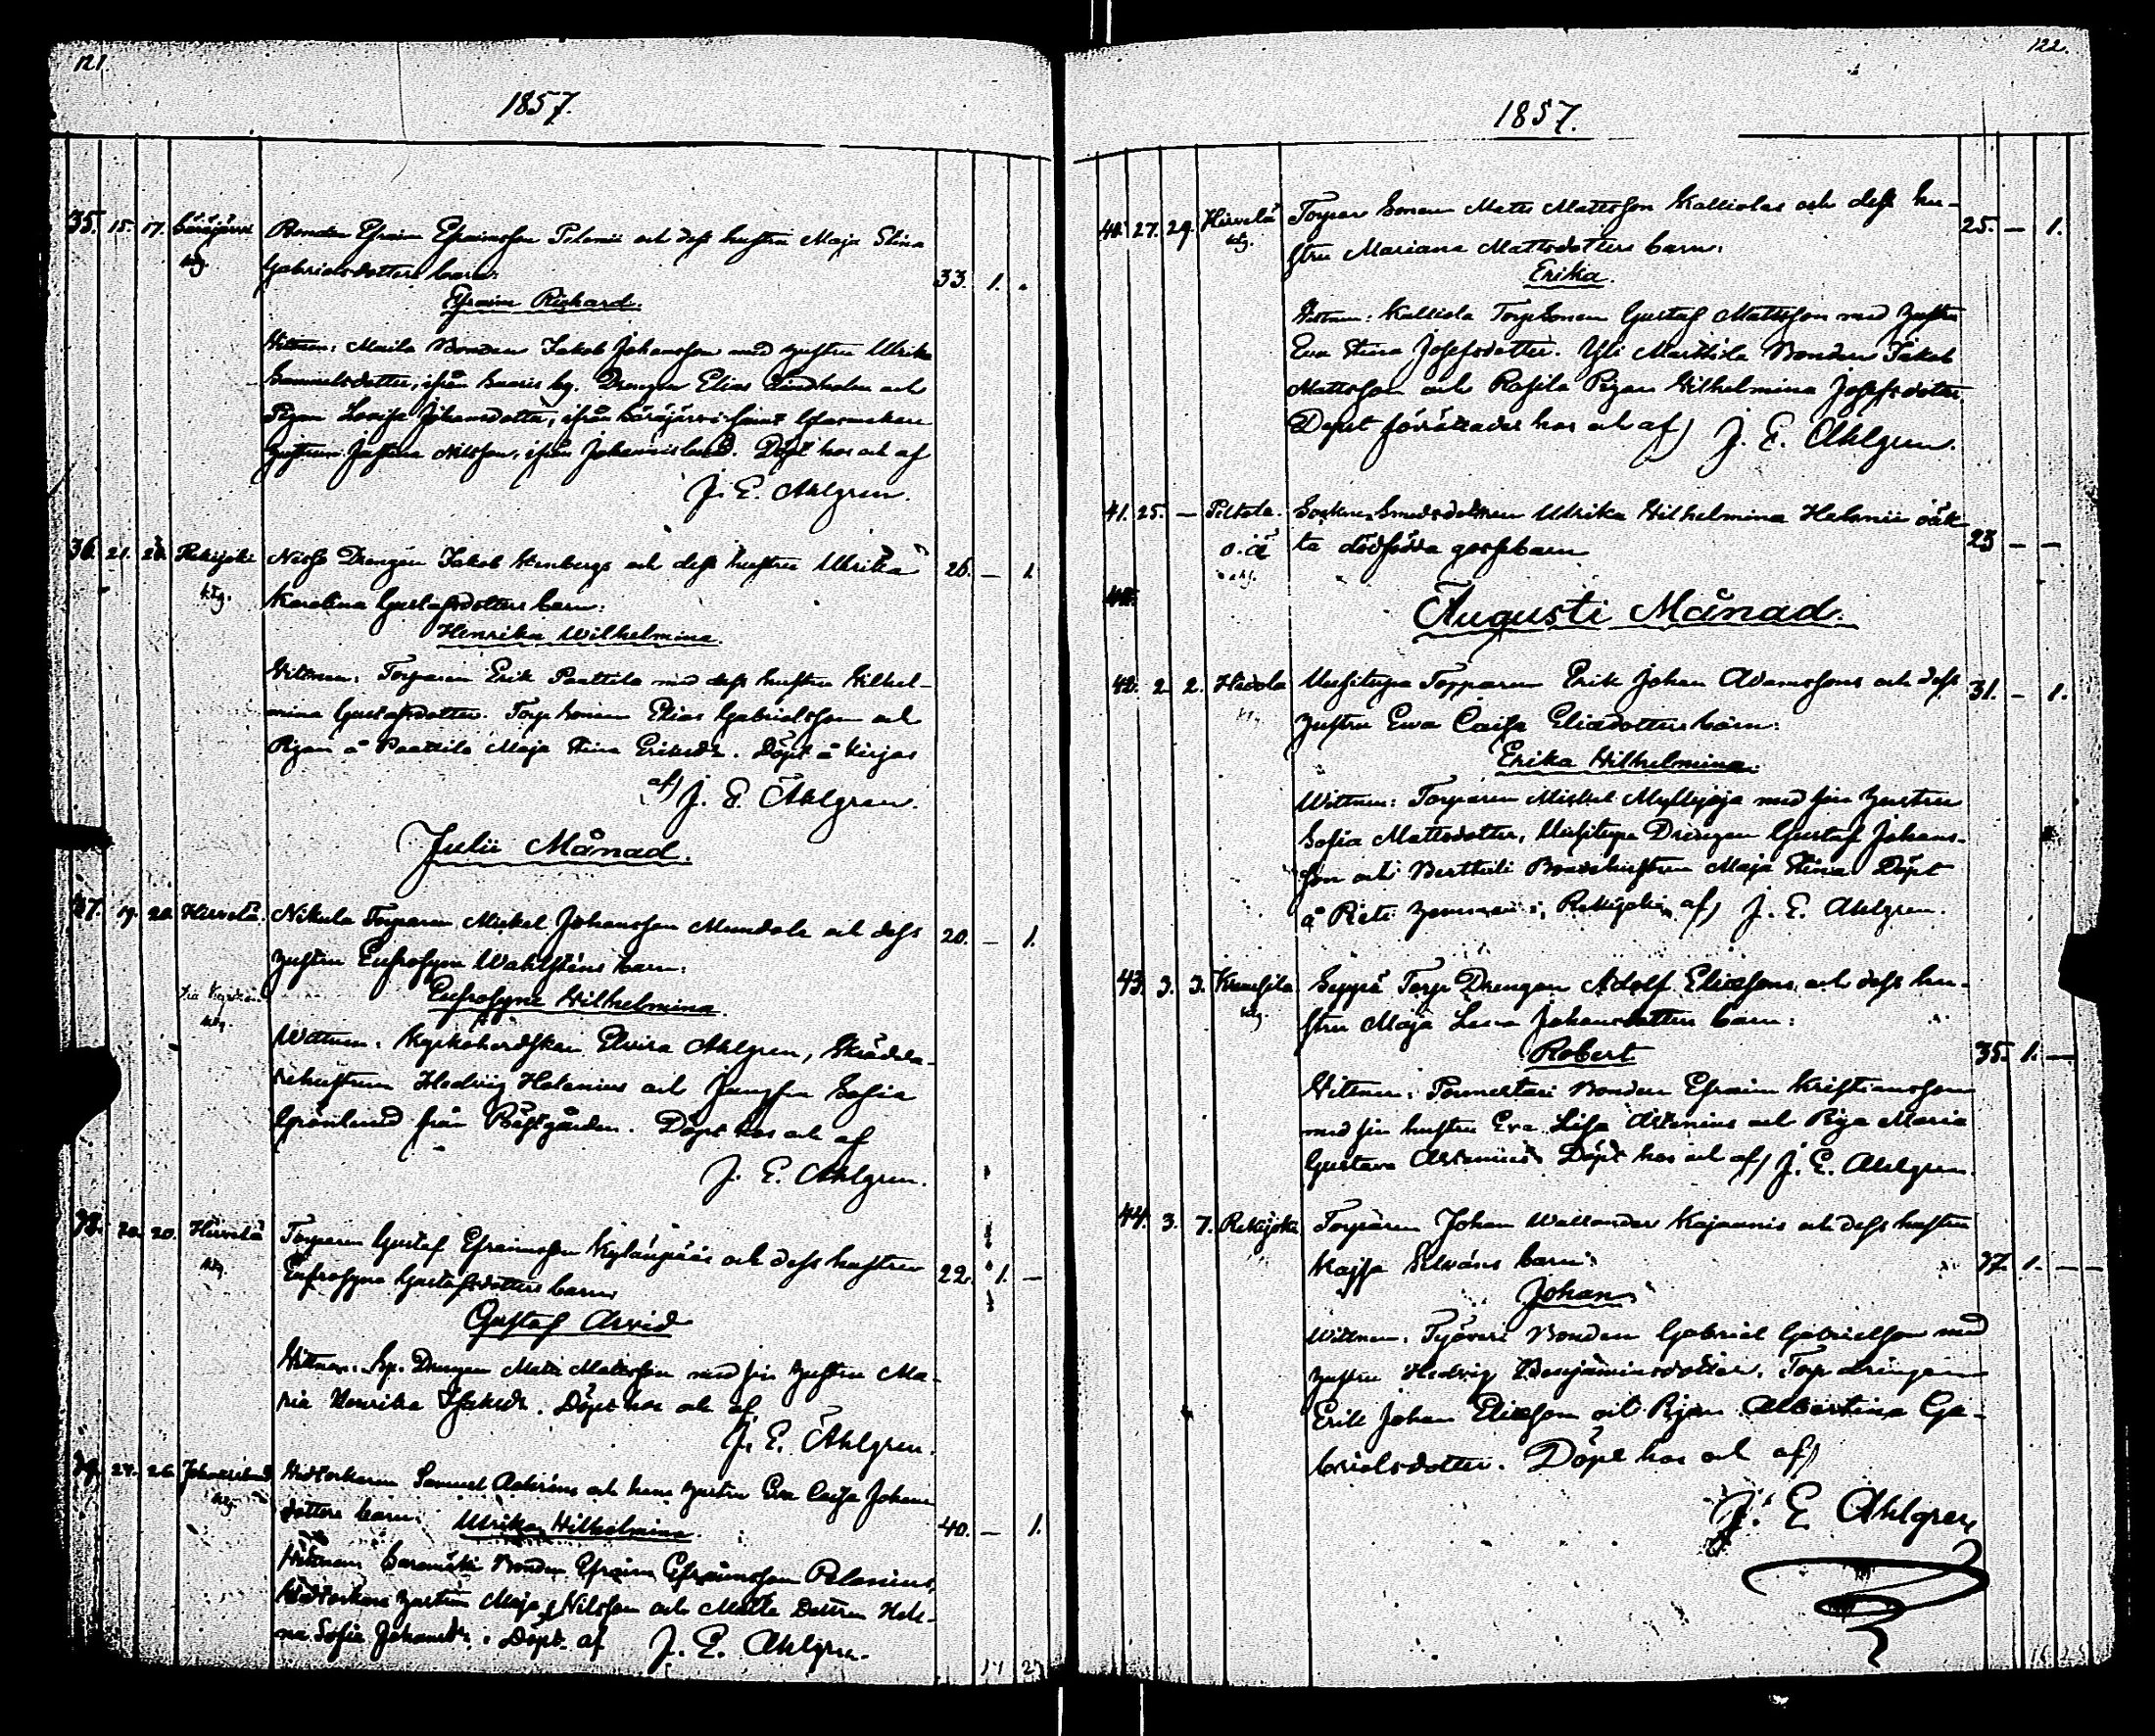 121.
1857.
35. 15. 17. Särsjärvi Bonden Efraim Efraimsson Polonii och dess hustru Maja Stina
ktg. Gabrielsdotters barn: 33. 1.
Efraim Rickard.
Wittnen: Maila Bonden Jakob Johansson med hustru Ulrika
Samuelsdotter, ifrån Suaris by. Drengen Elias Lindholm och
Pigan Lovisa Johansdotter, ifrån Särsjärvi samt
hustrun Justina Nilsson, ifrån Johannislund. Döpt hos och af
J. E. Ahlgren.
36. 21. Rekijoki Drengen Jakob Stenbergs och dess hustru Ulrika 26. — 1.
ktg. Karolina Gustafsdotters barn:
Henrika Wilhelmina.
Wittnen: Torparen Erik Paattila med dess hustru Wilhel-
mina Gustafsdotter. Torpsonen Elias Gabrielsson och
Pigan å Paattila Maja Stina Eriksdr. Döpt å Kirjas
af) J. E. Ahlgren.
Julii Månad.
37. 19. 20. Hirvelä. Nikula Torparen Mickel Johansson Mundola och dess 20. — 1.
hustru Eufrosyne Wahlsténs barn:
Eufrosyne Wilhelmina.
ktg.
Wittnen: Kyrkoherdskan Elvira Ahlgren, Skrädda-
rehustrun Hedvig Helenius och Jungfru Sofia
Grönlund från Prästgården. Döpt hos och af
J. E. Ahlgren.
38. 20. 20. Hirvelä Torparen Gustaf Efraimsson Kylänpääs och dess hustru 22. 1. —
ktg. Eufrosyne Gustafsdotters barn
Gustaf Arvid
Wittnen: Drengen Matts Mattsson med sin hustru Ma-
ria Henrika Isaksdr. Döpt hos och af
J. E. Ahlgren.
39. 24. 26. Johannislund Samuel och hans hustru Eva Caisa Johans
ktg. dotters barn: Ulrika Wilhelmina. 40. — 1.
Wittnen: Bonden Efraim Efraimsson Polonius,
hustrun Maja Nilsson och Hele-
na Sofia Johansdr. Döpt af J. E. Ahlgren.
122.
1857.
40. 27. 29. Hirvelä Torpare Sonen Matts Mattsson Kalliolas och dess hu- 25. — 1.
ktg. stru Mariana Mattsdotters barn:
Erika.
Wittnen: Kalliola Torpsonen Gustaf Mattsson med hustru
Eva Stina Josefsdotter. Yli Marttila Bonden Jakob
Mattsson och Rosila Pigan Wilhelmina Josefsdotter.
Dopet förrättades hos och af) J. E. Ahlgren.
41. 25. — Piltola. Sockne Smedsdottren Ulrika Wilhelmina Helenii oäk- 23 — —
o. ä ta dödfödda gossebarn
Augusti Månad.
42. 2. 2. Hidola Uusitupa Torparen Erik Johan Adamssons och dess 31. — 1.
ktg. hustru Ewa Caisa Eliædotters barn:
Erika Wilhelmina.
Wittnen: Torparen Mickel Myllyoja med sin hustru
Sofia Mattsdotter, Uusitupa Drengen Gustaf Johans-
son och Berttuli Bondehustrun Maja Stina Döpt
å Rekijoki, af) J. E. Ahlgren.
43. 3. 3. Seppä Torp Drengen Adolf Eliæsons och dess hu-
ktg. stru Maja Lena Johansdotters barn:
Robert 35. 1. —
Wittnen: Bonden Efraim Kristiansson
med sin hustru Eva Lisa Artenius och Piga Maria
Gustava Artenius. Döpt hos och af) J. E. Ahlgren.
44. 3. 7. Rekijoki Torparen Johan Wallander Kajaanis och dess hustru
Kajsa barn: 37. 1. —
Johan
Wittnen: Bonden Gabriel Gabrielsson med
hustru Hedvig Benjaminsdotter. Torp drengen
Erik Johan Eliæson och Pigan Albertina Ga-
brielsdotter. Döpt hos och af)
J. E. Ahlgren